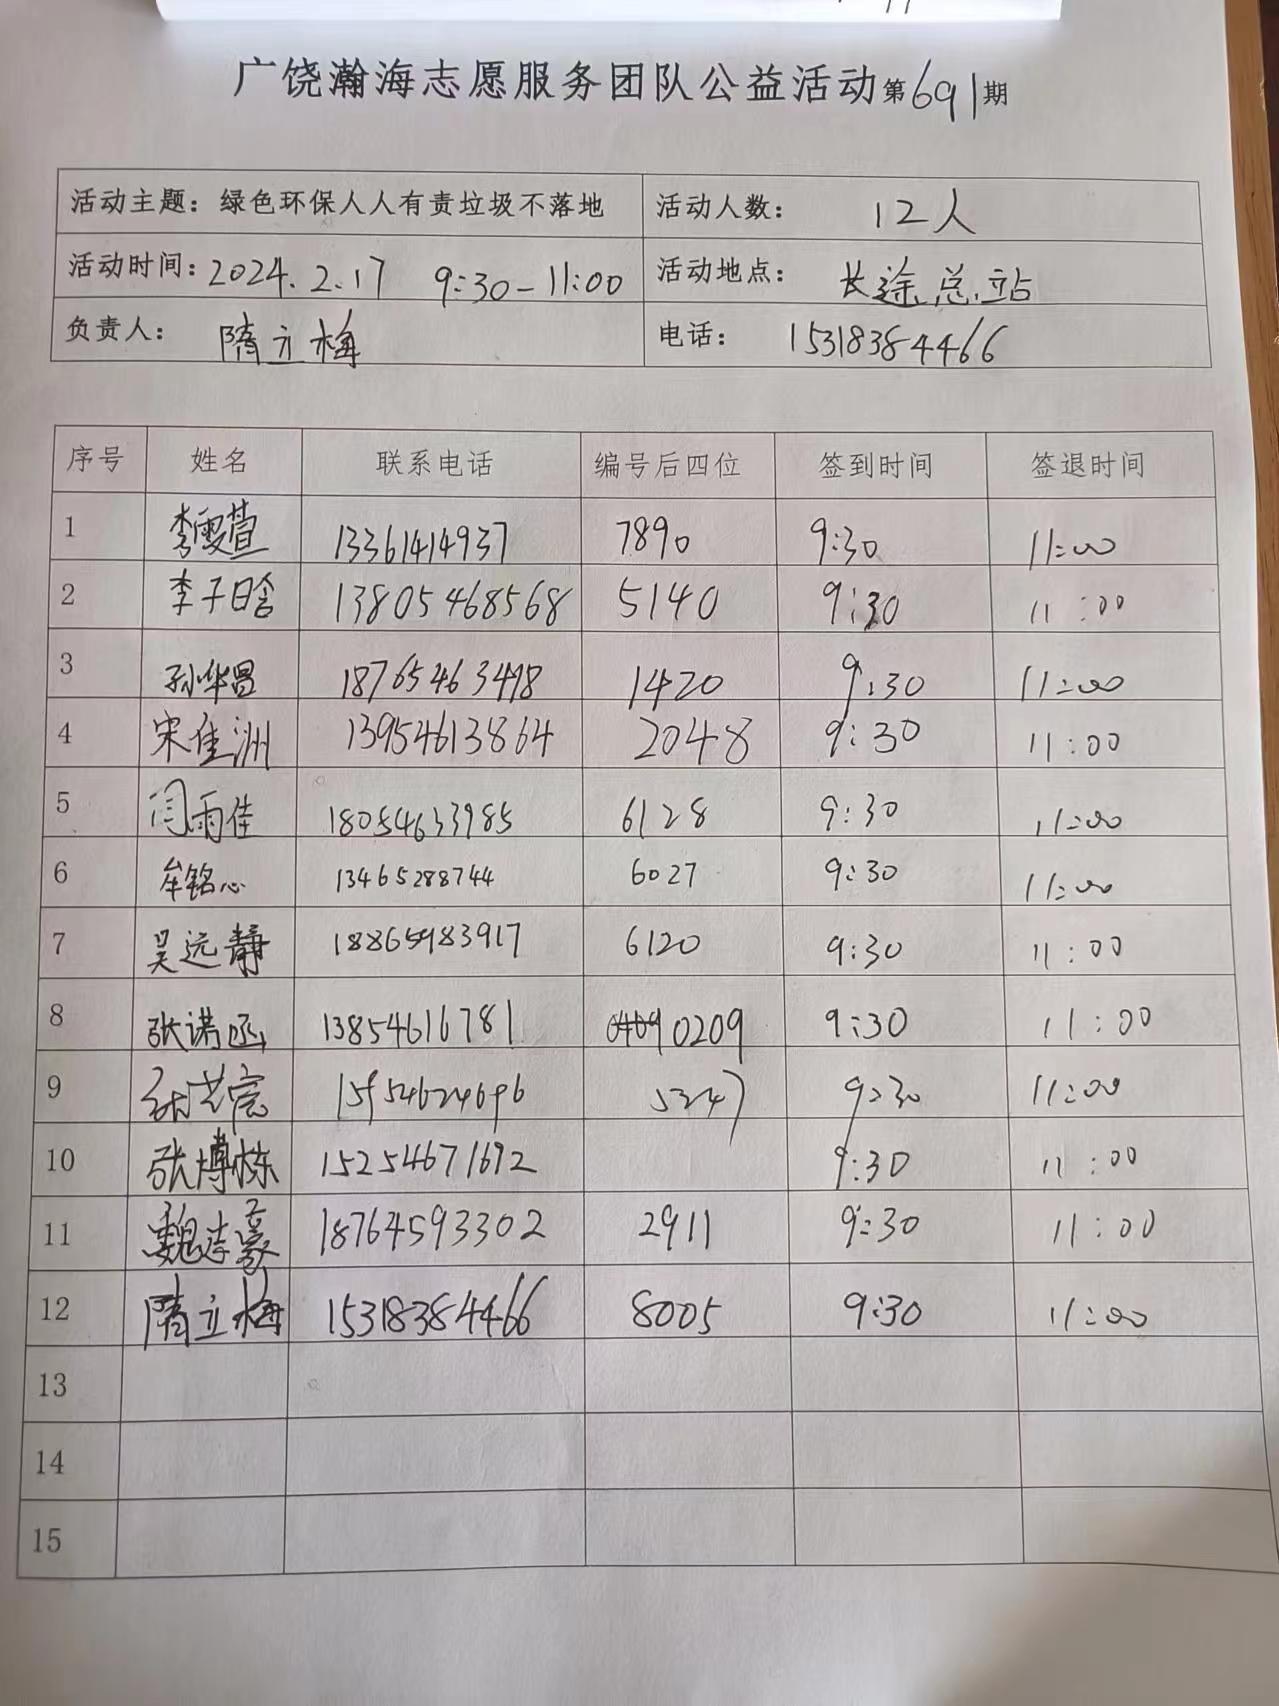 广饶瀚海志愿服务团队公益活动第691期
活动主题：绿色环保人人有责垃圾不落地 活动人数： 12人
活动时间：2024.2.17 9:30-11:00 活动地点： 长途总站
负责人： 隋立梅 电话： 15318384466
序号 姓名 联系电话 编号后四位 签到时间 签退时间
1 李雯萱 13361414937 7890 9:30 11:00
2 李子晗 13805468568 5140 9:30 11:00
3 孙华昌 18765463498 1420 9:30 11:00
4 宋佳洲 13954613864 2048 9:30 11:00
5 闫雨佳 18054633985 6128 9:30 11:00
6 牟铭心 13465288744 6027 9:30 11:00
7 吴远静 18865983917 6120 9:30 11:00
8 张诺函 13854616781 0209 9:30 11:00
9 5247 9:30 11:00
10 张博栋 15254671692 9:30 11:00
11 魏志豪 18764593302 2911 9:30 11:00
12 隋立梅 15318384466 8005 9:30 11:00
13
14
15